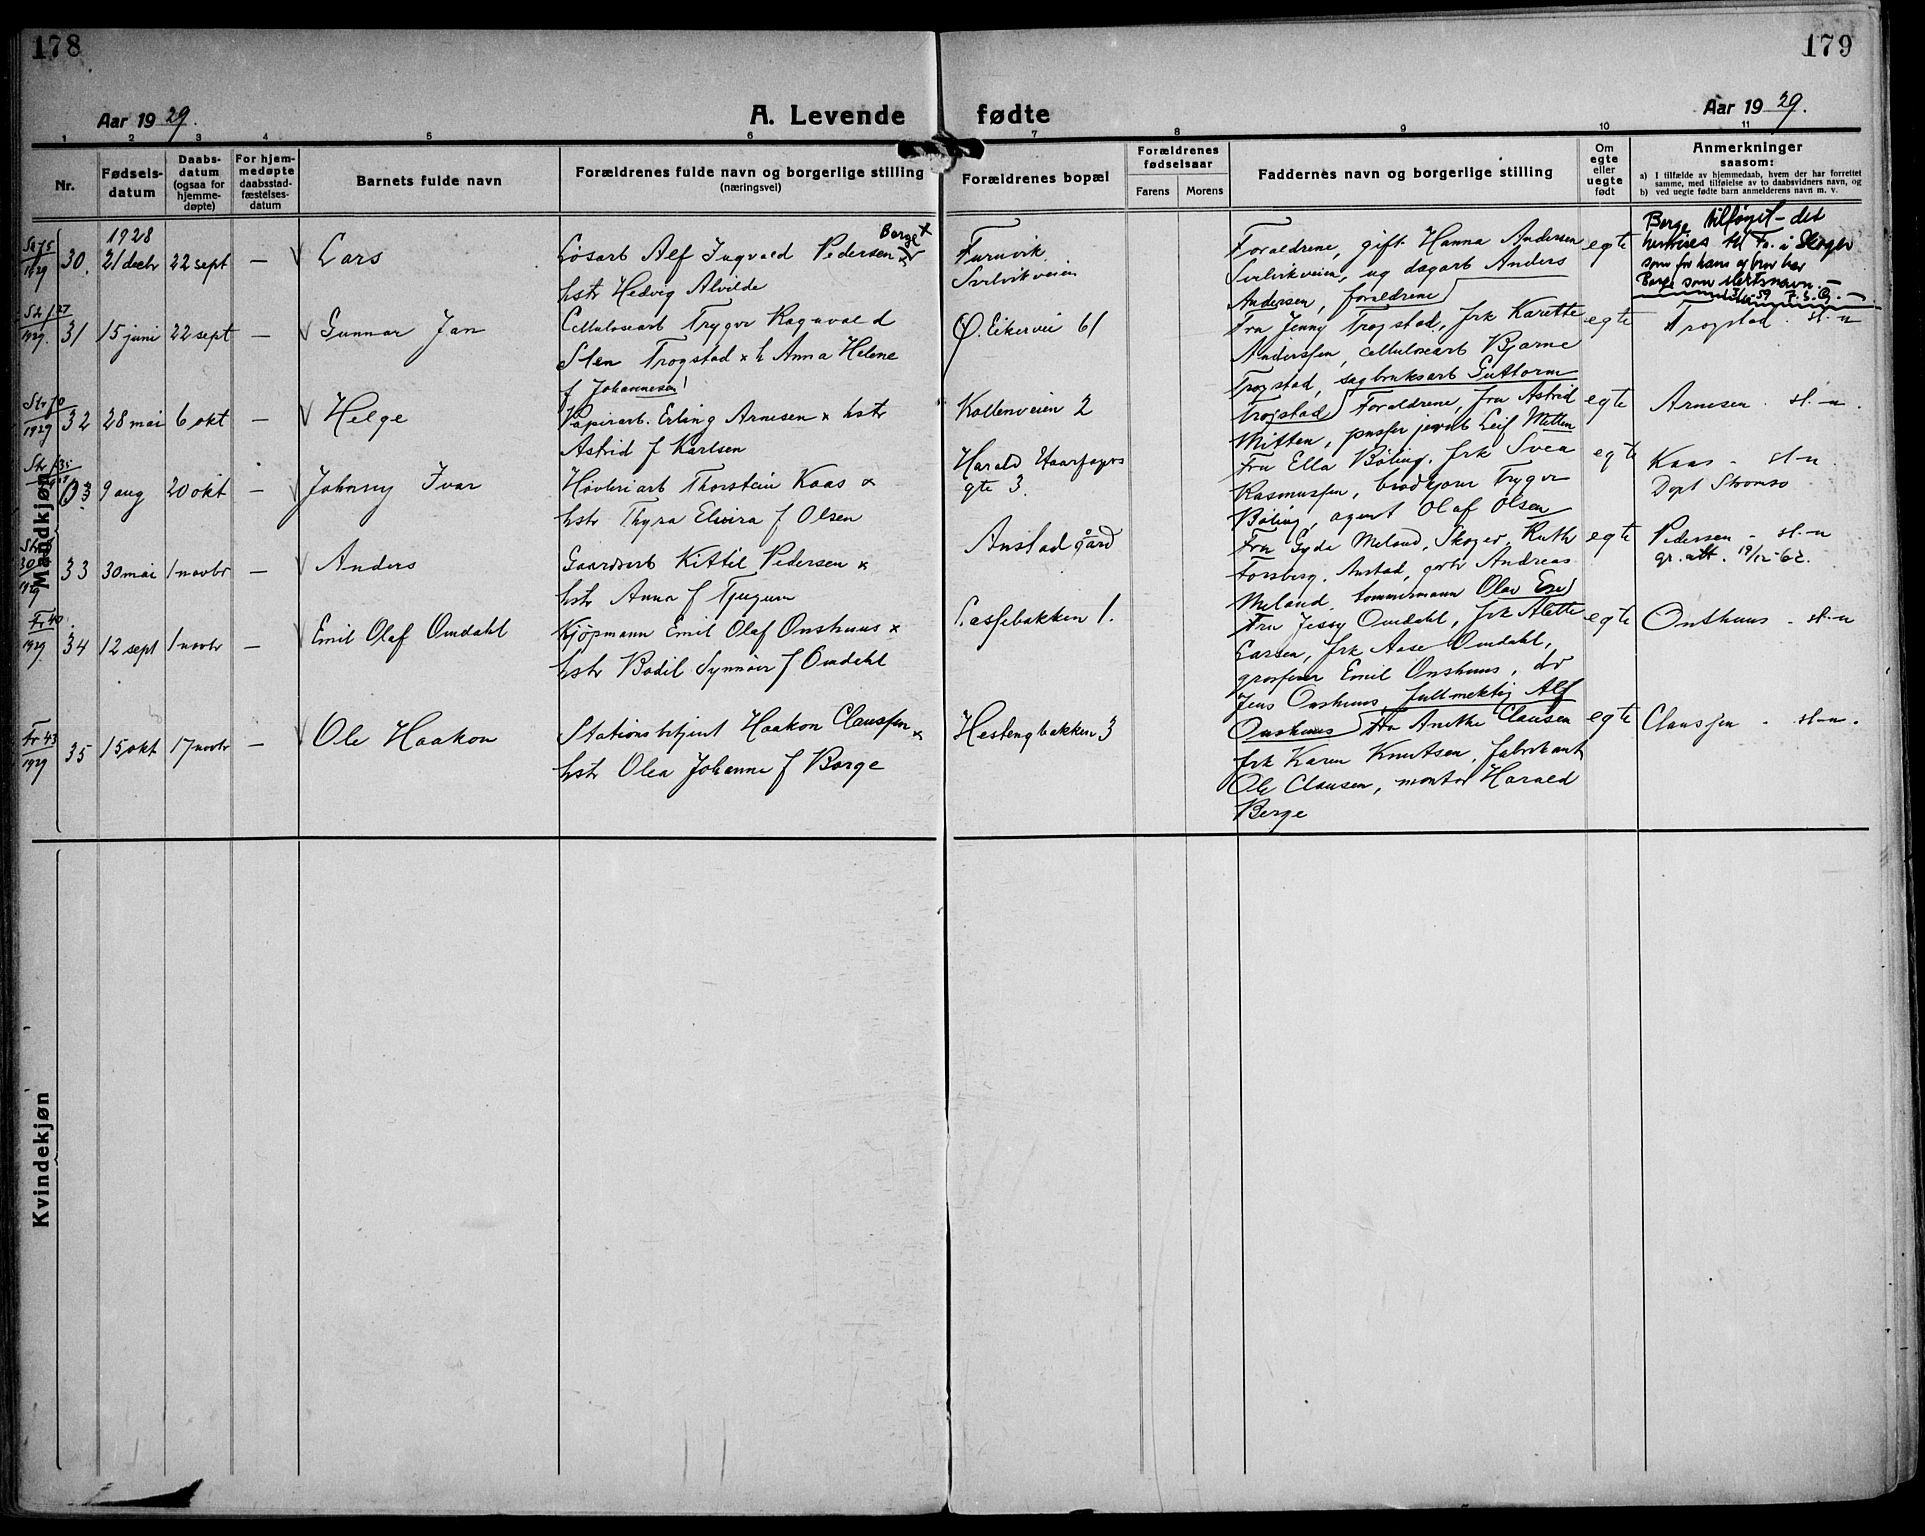 178
179
Aar 1929.
A. Levende fødte
Aar 1929.
1 2 3 4 5 6 7 8 9 10 11
Nr.
Fødselsdatum
Daabsdatum (ogsaa for hjemmedøpte)
For hjemmedøpte daabsstadfæstelsesdatum
Barnets fulde navn
Forældrenes fulde navn og borgerlige stilling
(næringsvei)
Forældrenes bopæl
Forældrenes fødselsaar
Farens Morens
Faddernes navn og borgerlige stilling
Om egte eller uegte født
Anmerkninger
saasom:
a) I tilfælde av hjemmedaab, hvem der har forrettet
samme, med tilføielse av to daabsvidners navn, og
b) ved uegte fødte barn anmelderens navn m. v.
Mandkjøn
1928
30. 21 decbr 22 sept — Lars
Løsarb Alf Ingvald Pedersen Berge x
hstr Hedvig Alvilde
Furuvik
Svelvikveien
Foraldrene, gift Hanna Andersen
Svelvikveien, og dagarb Anders
Andersen, foraldrene
egte
Berge tilføyet – det
henvises til Fr. i Skoger
som for hans og bror har
Berge som slektsnavn. –
1929 31 15 juni 22 sept — Gunnar Jan
Cellulosearb Trygve Ragnvald
Sten Trogstad x h Anna Helene
f Johannesen
Ø. Eikervei 61
Fru Jenny Trogstad, frk Karette
Anderssen, cellulosearb Bjarne
Trogstad, sagbruksarb Guttorm
Trogstad
egte
Trogstad - sl.-n
1929 32 28 mai 6 okt — Helge
Papirarb. Erling Arnesen x hstr
Astrid f Karlsen
Kollenveien 2
Foraldrene, fru Astrid
Mitten, Leif Mitten
egte
Arnesen - sl.-n.
33 9 aug 20 okt — Johnny Ivar
Høvleriarb Thorstein Kaas x
hstr Thyra Elvira f Olsen
Harald Haarfagres
gte 3
Fru Ella Böling, frk Svea
Rasmussen, brødkjører Trygve
Böling, agent Olaf Olsen
egte
Kaas - sl-n.
Døpt Strømsø
1929 33 30 mai 1 novbr — Anders
Gaardsarb Kittil Pedersen x
hstr Anna f Tjugum
Austad gård
Fru Gyda Meland, Skoger, Ruth
Forsberg, Austad, grbr Andreas
Meland, tømmermann Olav
egte
Pedersen - sl.-n
gr. att. 19/12-62.
1929 34 12 sept 1 novbr — Emil Olaf Omdahl
Kjøpmann Emil Olaf Onshuus x
hstr Bodil Synnøve f Omdahl
bakken 1.
Fru Jessy Omdahl, frk Alette
Larsen, frk Aase Omdahl,
grosserer Emil Onshuus, do
Jens Onshuus, fullmektig Alf
Onshuus
egte
Onshuus - sl.-n
Fr 43
1929 35 15 okt 17 novbr — Ole Haakon
Stationsbetjent Haakon Claussen x
hstr Olea Johanne f Borge
Hestengbakken 3
fru Anethe Clausen
frk Karen Knutsen, fabrikant
Ole Clausen, montør Harald
Berge
egte
Claussen - sl-n.
Kvindekjøn